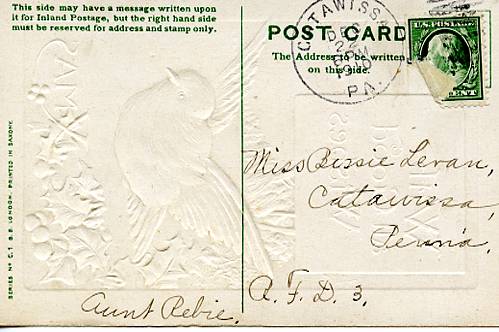 This side may have a message written upon
it for Inland Postage, but the right hand side
must be reserved for address and stamp only.
SERIES No C.1 B.B. LONDON. PRINTED IN SAXONY.
Aunt Rebie.
POST CARD
The Address to be written
on this side.
CATAWISSA
DEC
2
PM
1910
PA.
U.S. POSTAGE
Miss Bessie Levan,
Catawissa,
Penna.
R. F. D. 3.